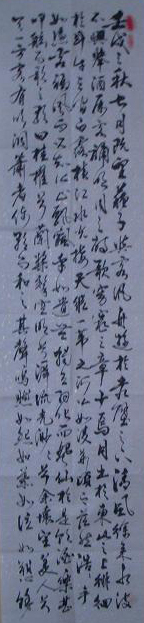 壬戌之秋七月既望蘇子與客泛舟遊於赤壁之下清風徐來水波
不興舉酒屬客誦明月之詩歌窈窕之章少焉月出於東山之上徘徊
於斗牛之間白露橫江水光接天縱一葦之所如凌萬頃之茫然浩浩乎
如馮虛御風而不知其所止飄飄乎如遺世獨立羽化而登仙於是飲酒樂甚
扣舷而歌之歌曰桂棹兮蘭槳擊空明兮溯流光渺渺兮余懷望美人兮
天一方客有吹洞簫者倚歌而和之其聲嗚嗚然如怨如慕如泣如訴餘